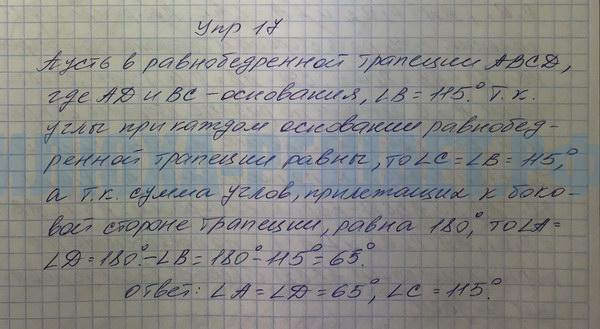 Упр 17
Пусть в равнобедренной трапеции ABCD,
где AD и BC - основания, ∠B = 115°. Т.к.
углы при каждом основании равнобед-
ренной трапеции равны, то ∠C = ∠B = 115°,
а т.к. сумма углов, прилежащих к боко-
вой стороне трапеции, равна 180°, то ∠A =
∠D = 180° - ∠B = 180° - 115° = 65°.
ответ: ∠A = ∠D = 65°, ∠C = 115°.